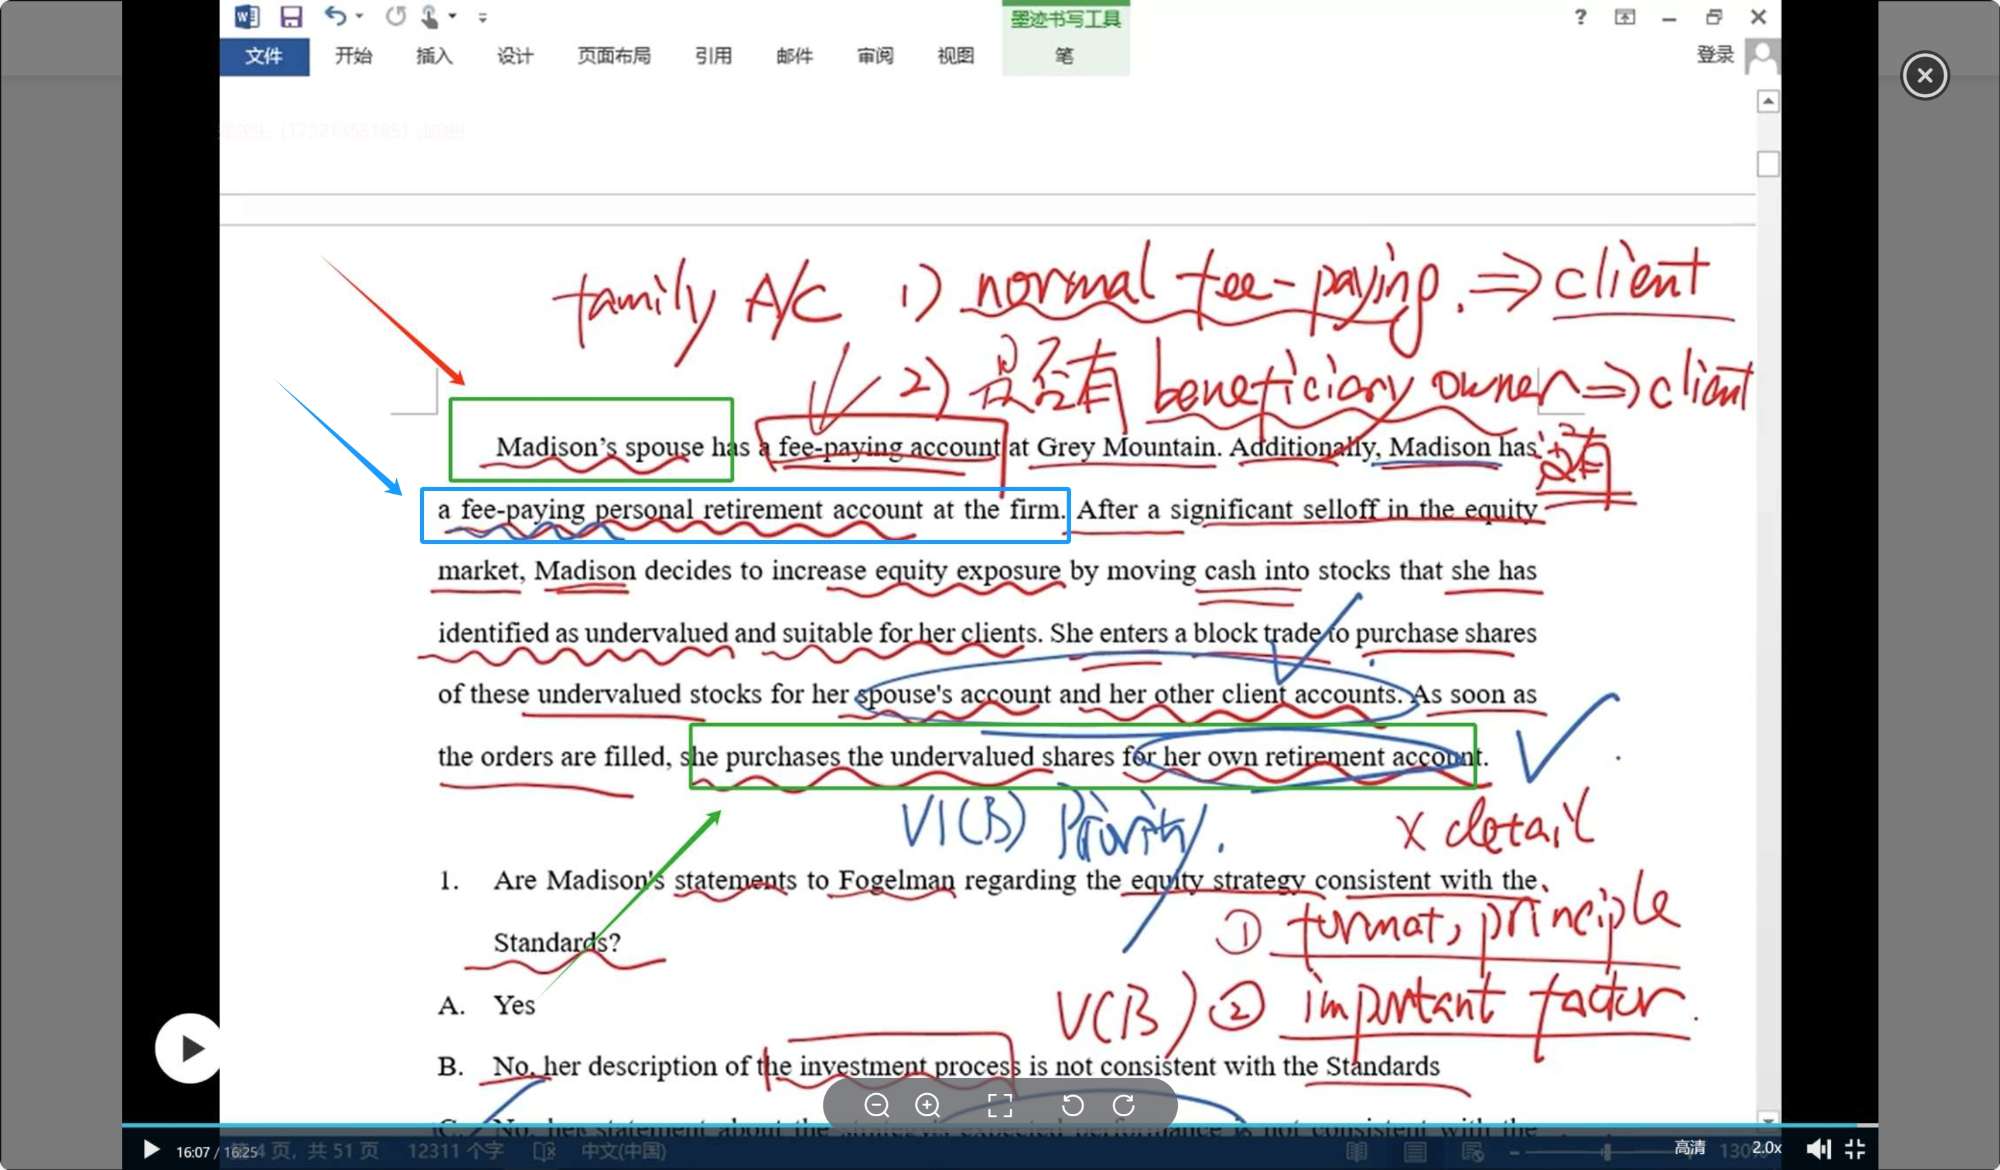 墨迹书写工具
?
文件 开始 插入 设计 页面布局 引用 邮件 审阅 视图 笔 登录
family A/C 1) normal fee-paying. ⇒ client
2) 是否有 beneficiary owner ⇒ client
Madison's spouse has a fee-paying account at Grey Mountain. Additionally, Madison has
没有
a fee-paying personal retirement account at the firm. After a significant selloff in the equity
market, Madison decides to increase equity exposure by moving cash into stocks that she has
identified as undervalued and suitable for her clients. She enters a block trade to purchase shares
of these undervalued stocks for her spouse's account and her other client accounts. As soon as
the orders are filled, she purchases the undervalued shares for her own retirement account.
VI(B) Priority. X detail
1. Are Madison's statements to Fogelman regarding the equity strategy consistent with the
① format, principle
Standards?
A. Yes
V(B) ② important factor.
B. No, her description of the investment process is not consistent with the Standards
C. No, her statement about the strategy's expected performance is not consistent with the
16:07 / 16:25
4 页，共 51 页 12311 个字 中文(中国) 高清 2.0x 130